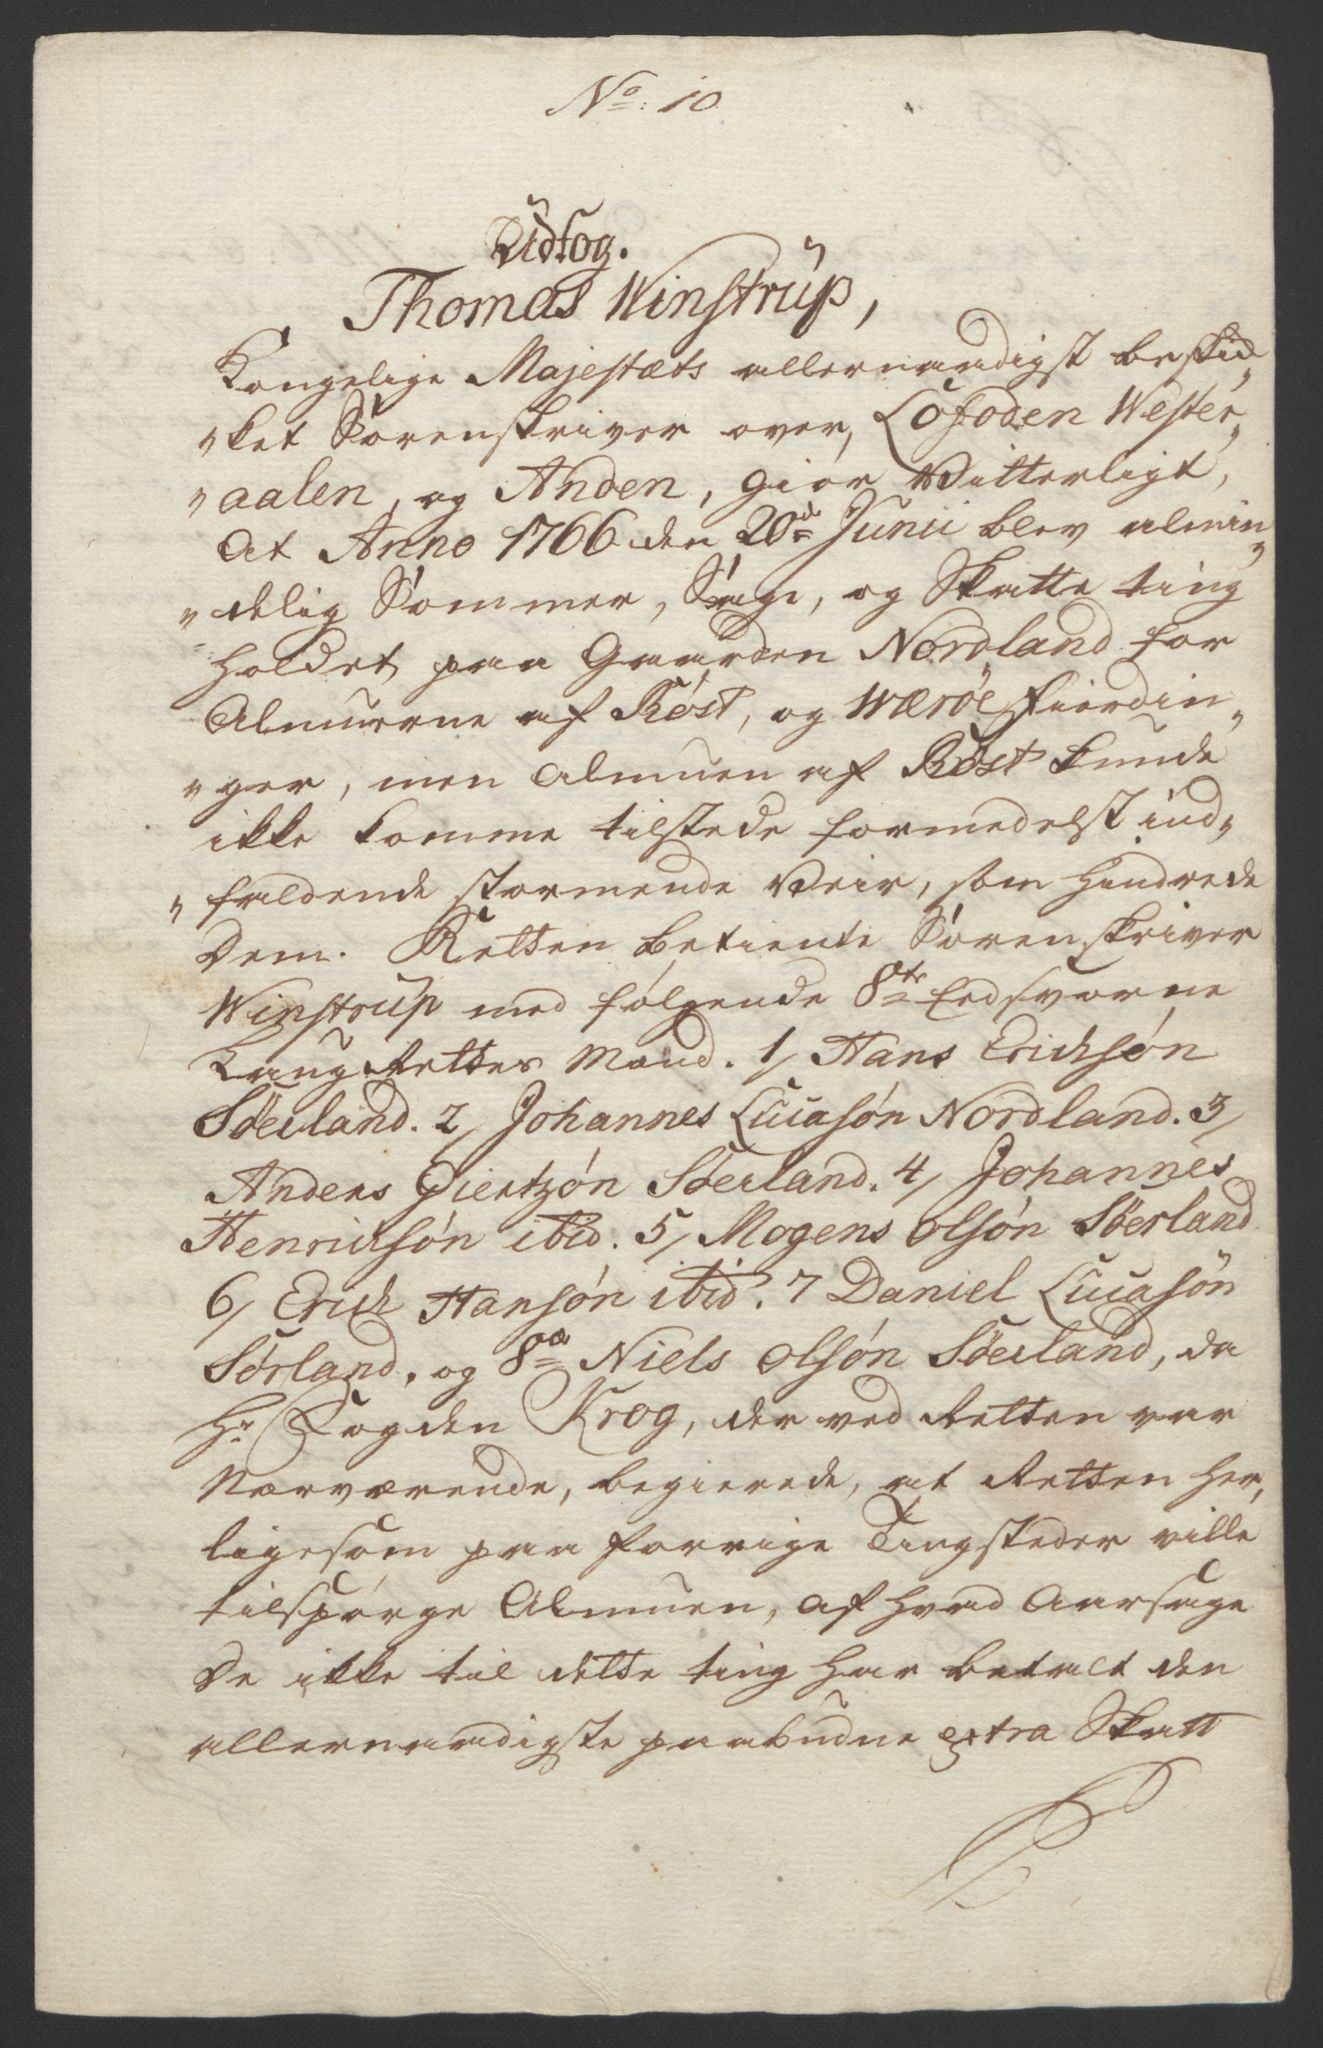 No: 10
Udtog.
Thomas Winstrup,
Kongelige Majestæts allernaadigst beskik-
"ket Sørenskriver over, Lofoden Wester-
"aalen, og Anden, giør Vitterligt,
At Anno 1766 den 20de Junii blev almin-
"delig Sommer, Sage, og Skatte ting
holdet paa Gaarden Nordland for
Almuerne af Røst, og Werøe fierdin-
"ger, men Almuen af Røst kunde
ikke komme tilstede formedelst ind-
"faldende stormende Veir, som hindrede
Dem. Retten betiente Sørenskriver
Winstrup med følgende 8te Eedsvorne
Laug Rettes Mænd. 1/ Hans Erichsøn
Søerland. 2/ Johannes Lucasøn Nordland. 3/
Anders Giertzøn Søerland. 4/ Johannes
Henrichsøn ibid. 5/ Mogens Olsøn Søerland
6/ Erich Hansøn ibid. 7 Daniel Lucasøn
Sørland. og 8de Niels Olsøn Søerland, da
Hr Fogden Krog, der ved Retten var
Nærværende, begierede, at Retten her,
ligesom paa forrige Tingsteder ville
tilspørge Almuen, af hvad Aarsage
De ikke til dette ting har betalt den
allernaadigste paabudne extra Skatt